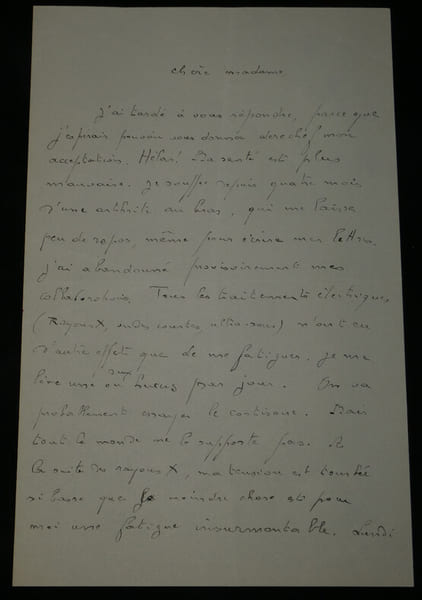 Chère madame
J'ai tardé à vous répondre, parce que
j'espérais pouvoir vous donner derechef mon
acceptation. Hélas! Ma santé est plus
mauvaise. Je souffre depuis quatre mois
d'une arthrite au bras, qui me laisse
peu de repos, même pour écrire mes lettres.
J'ai abandonné provisoirement mes
collaborations. Tous les traitements électriques
(Rayons X, ondes courtes, ultra-sons) n'ont eu
d'autre effet que de me fatiguer. Je me
lève une ou deux heures par jour. On va
probablement essayer le cortisone. Mais
tout le monde ne le supporte pas. A
la suite des rayons X, ma tension est tombée
si basse que le moindre chose est pour
moi une fatigue insurmontable. Lundi